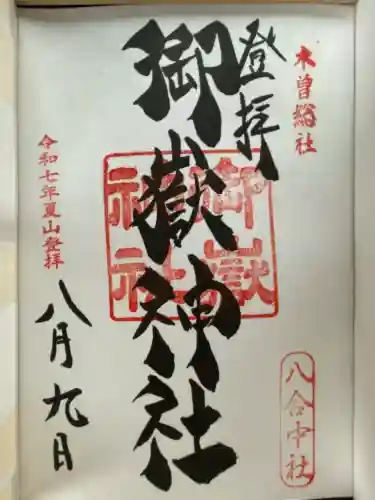 木曽総社
登拝
御嶽神社
御嶽
神社
八合中社
令和七年夏山登拝
八月九日